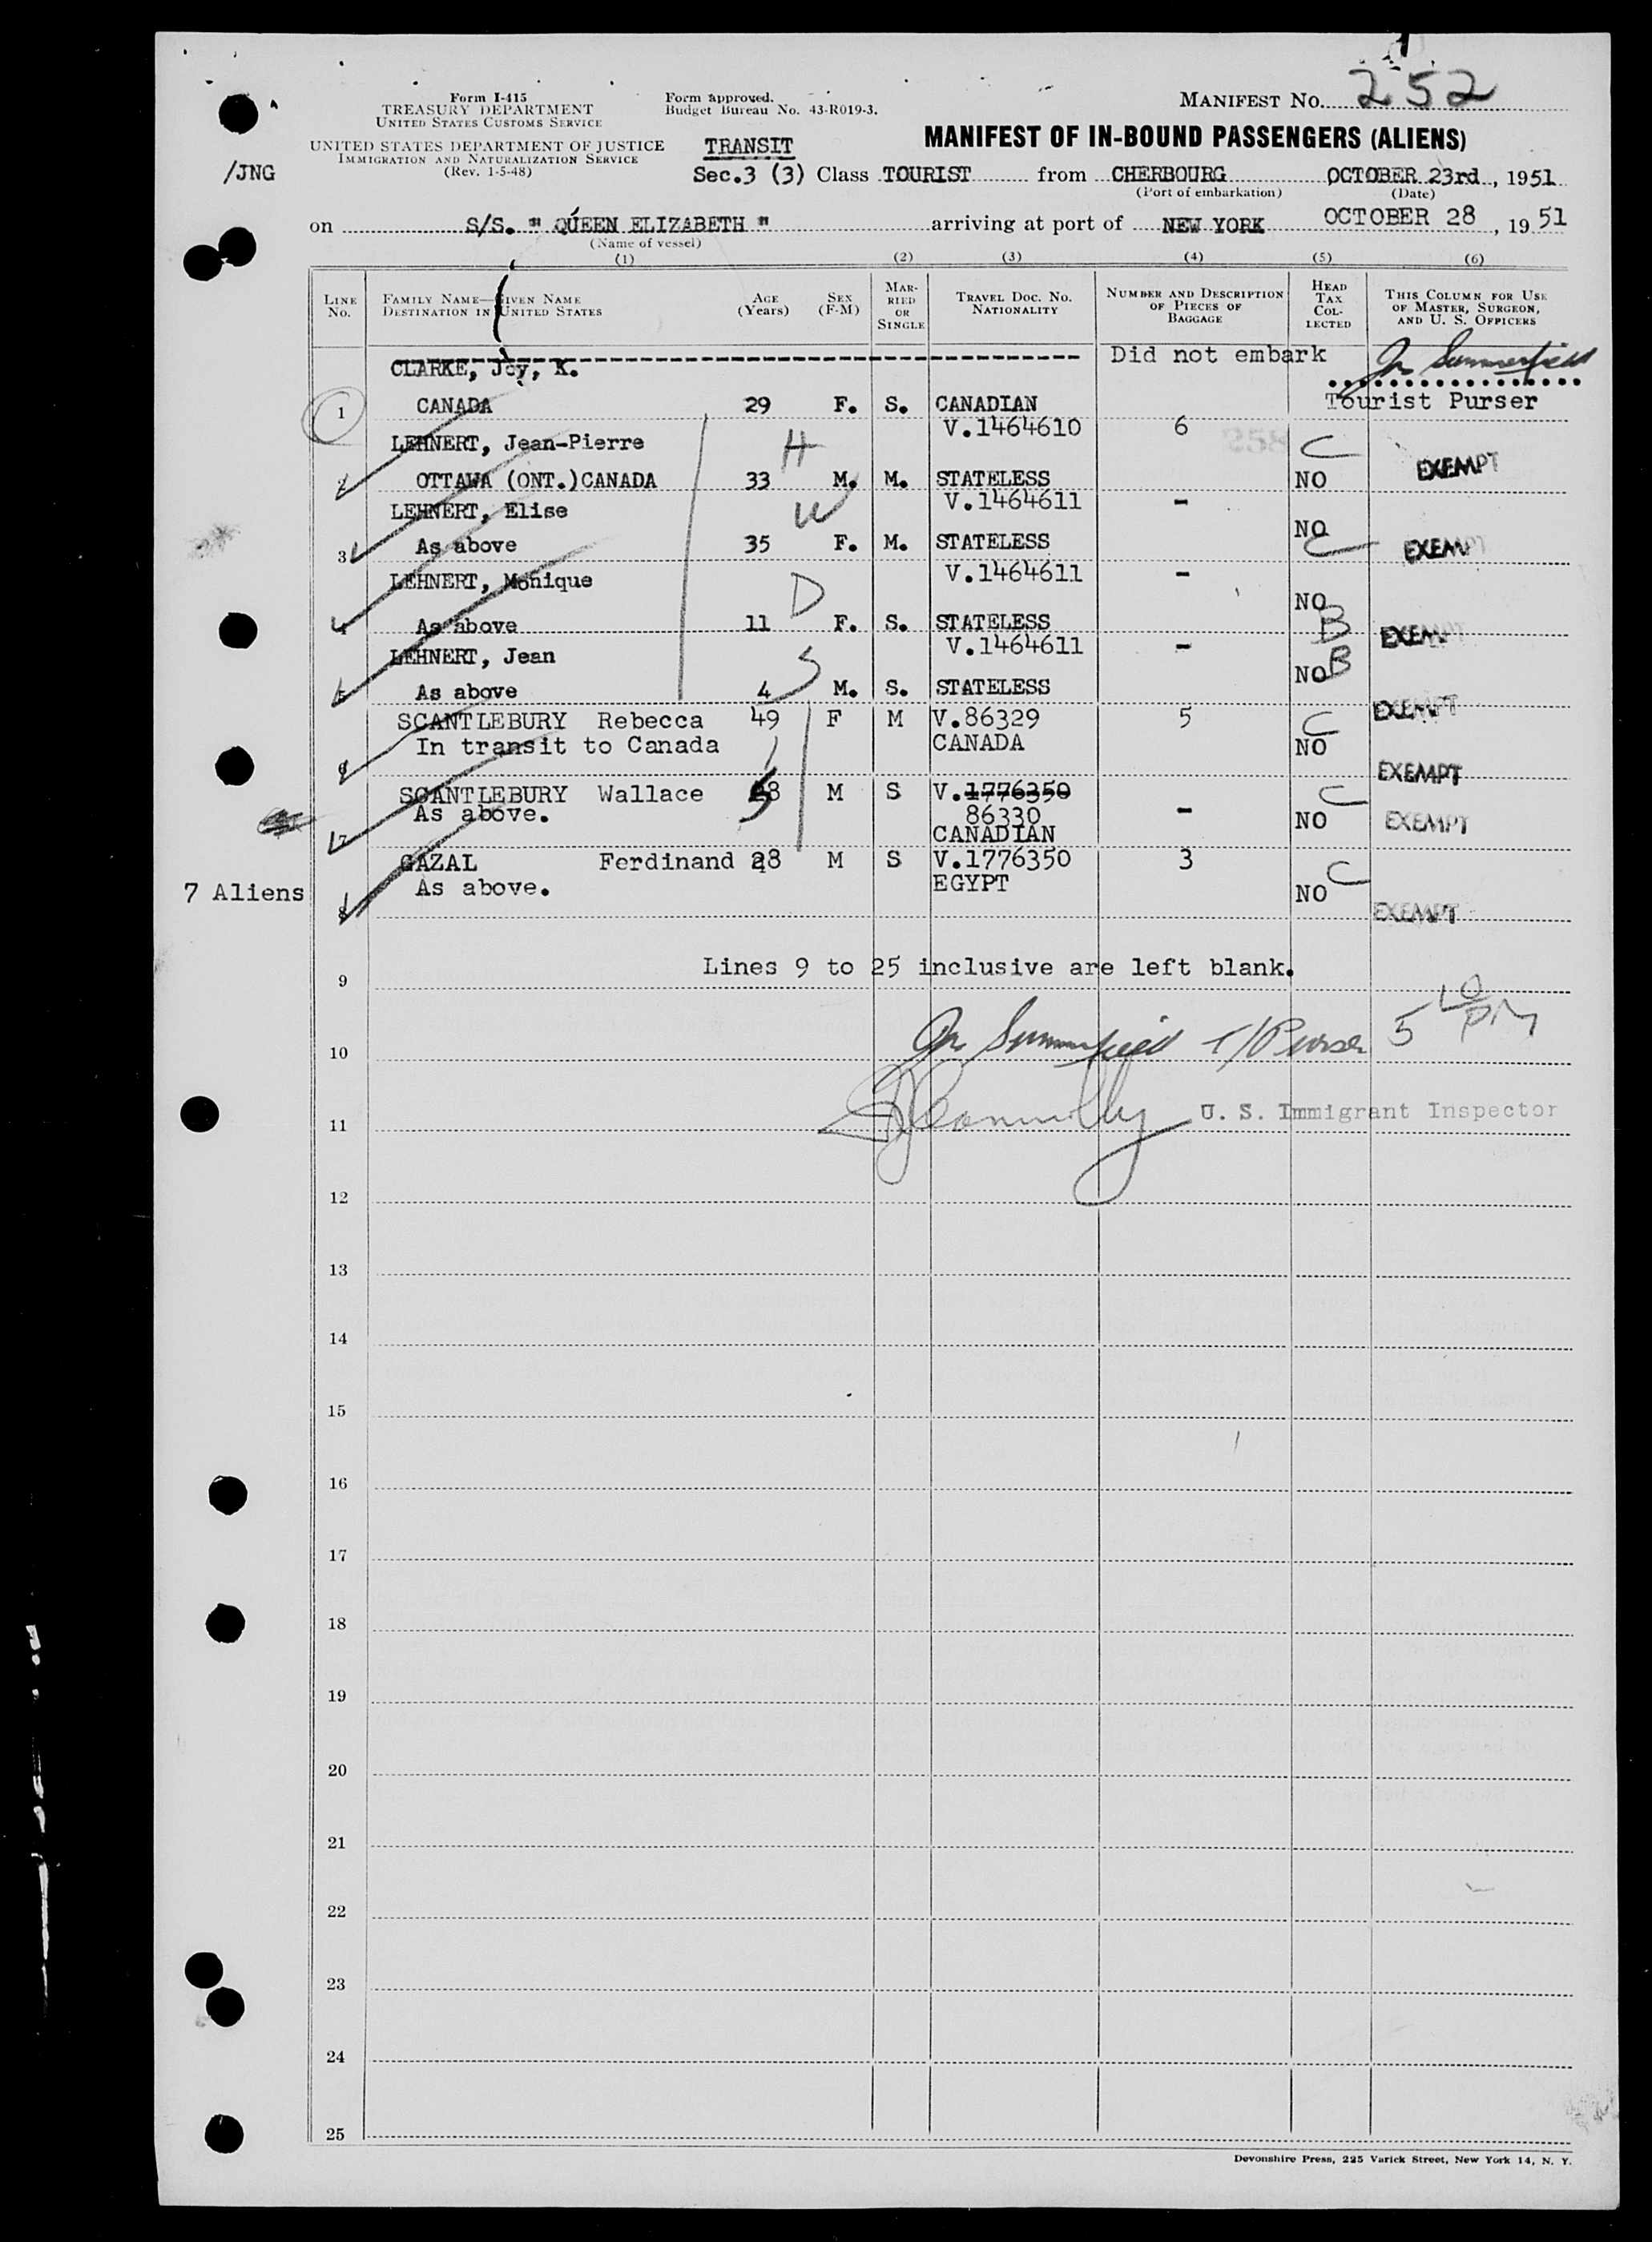 252
Form I-415
TREASURY DEPARTMENT
UNITED STATES CUSTOMS SERVICE
Form approved.
Budget Bureau No. 43-R019-3.
MANIFEST No.
UNITED STATES DEPARTMENT OF JUSTICE
IMMIGRATION AND NATURALIZATION SERVICE
(Rev. 1-5-48)
TRANSIT
MANIFEST OF IN-BOUND PASSENGERS (ALIENS)
/JNG
Sec.3 (3) Class TOURIST from CHERBOURG OCTOBER 23rd, 1951
(Port of embarkation) (Date)
on S/S. " QUEEN ELIZABETH " arriving at port of NEW YORK OCTOBER 28, 1951
(Name of vessel)
(1) (2) (3) (4) (5) (6)
LINE No.
FAMILY NAME—GIVEN NAME
DESTINATION IN UNITED STATES
AGE (Years)
SEX (F-M)
MARRIED OR SINGLE
TRAVEL DOC. NO. NATIONALITY
NUMBER AND DESCRIPTION OF PIECES OF BAGGAGE
HEAD TAX COLLECTED
THIS COLUMN FOR USE OF MASTER, SURGEON, AND U. S. OFFICERS
CLARKE, Joy, K. Did not embark Summerfield
1 CANADA 29 F. S. CANADIAN Tourist Purser
LEHNERT, Jean-Pierre H V.1464610 6 C
2 OTTAWA (ONT.)CANADA 33 M. M. STATELESS NO EXEMPT
LEHNERT, Elise W V.1464611 - NO
3 As above 35 F. M. STATELESS C EXEMPT
LEHNERT, Monique D V.1464611 - NO
4 As above 11 F. S. STATELESS B EXEMPT
LEHNERT, Jean S V.1464611 - NO B
5 As above 4 M. S. STATELESS EXEMPT
SCANTLEBURY Rebecca 49 F M V.86329 5 C
In transit to Canada CANADA NO
6 EXEMPT
SCANTLEBURY Wallace M S V.1776350 - C
As above. 86330 NO EXEMPT
7 CANADIAN
GAZAL Ferdinand 28 M S V.1776350 3 C
As above. EGYPT NO
7 Aliens
8 EXEMPT
Lines 9 to 25 inclusive are left blank.
9
Summerfield T/Purser 5 10 PM
10
Connolly U. S. Immigrant Inspector
11
12
13
14
15
16
17
18
19
20
21
22
23
24
25
Devonshire Press, 225 Varick Street, New York 14, N. Y.